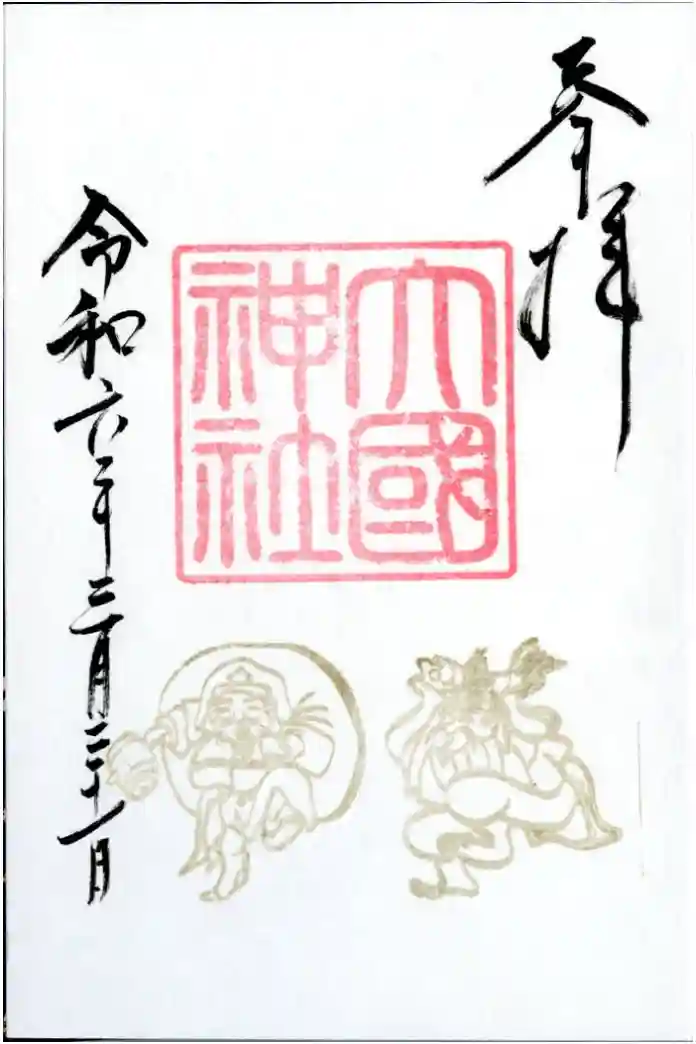 奉拝
大國
神社
令和六年三月二十一日